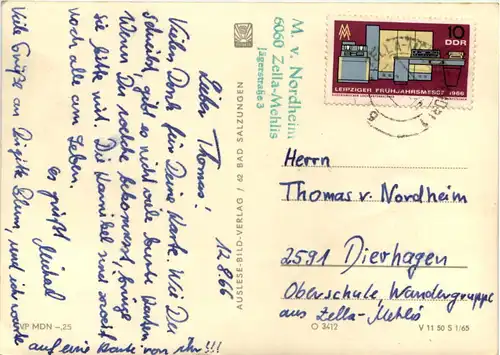 12.8.66
Lieber Thomas!
Vielen Dank für Deine Karte. Wie Du
schreibst, gibt es nicht viele bunte Karten.
Wenn Du welche bekommst, bringe
sie bitte mit. Die Karnickel sind soweit
noch alle am Leben.
es grüßt Michael
Viele Grüße an Brigitte Blum, und ich warte
auf eine Karte von ihr!!!
VP MDN –,25
AUSLESE-BILD-VERLAG / 62 BAD SALZUNGEN
M. v. Nordheim
6060 Zella-Mehlis
Jägerstraße 3
10
DDR
LEIPZIGER FRÜHJAHRSMESSE 1966
Herrn
Thomas v. Nordheim
2591 Dierhagen
Oberschule, Wandergruppe
aus Zella-Mehlis
O 3412
V 11 50 S 1/65